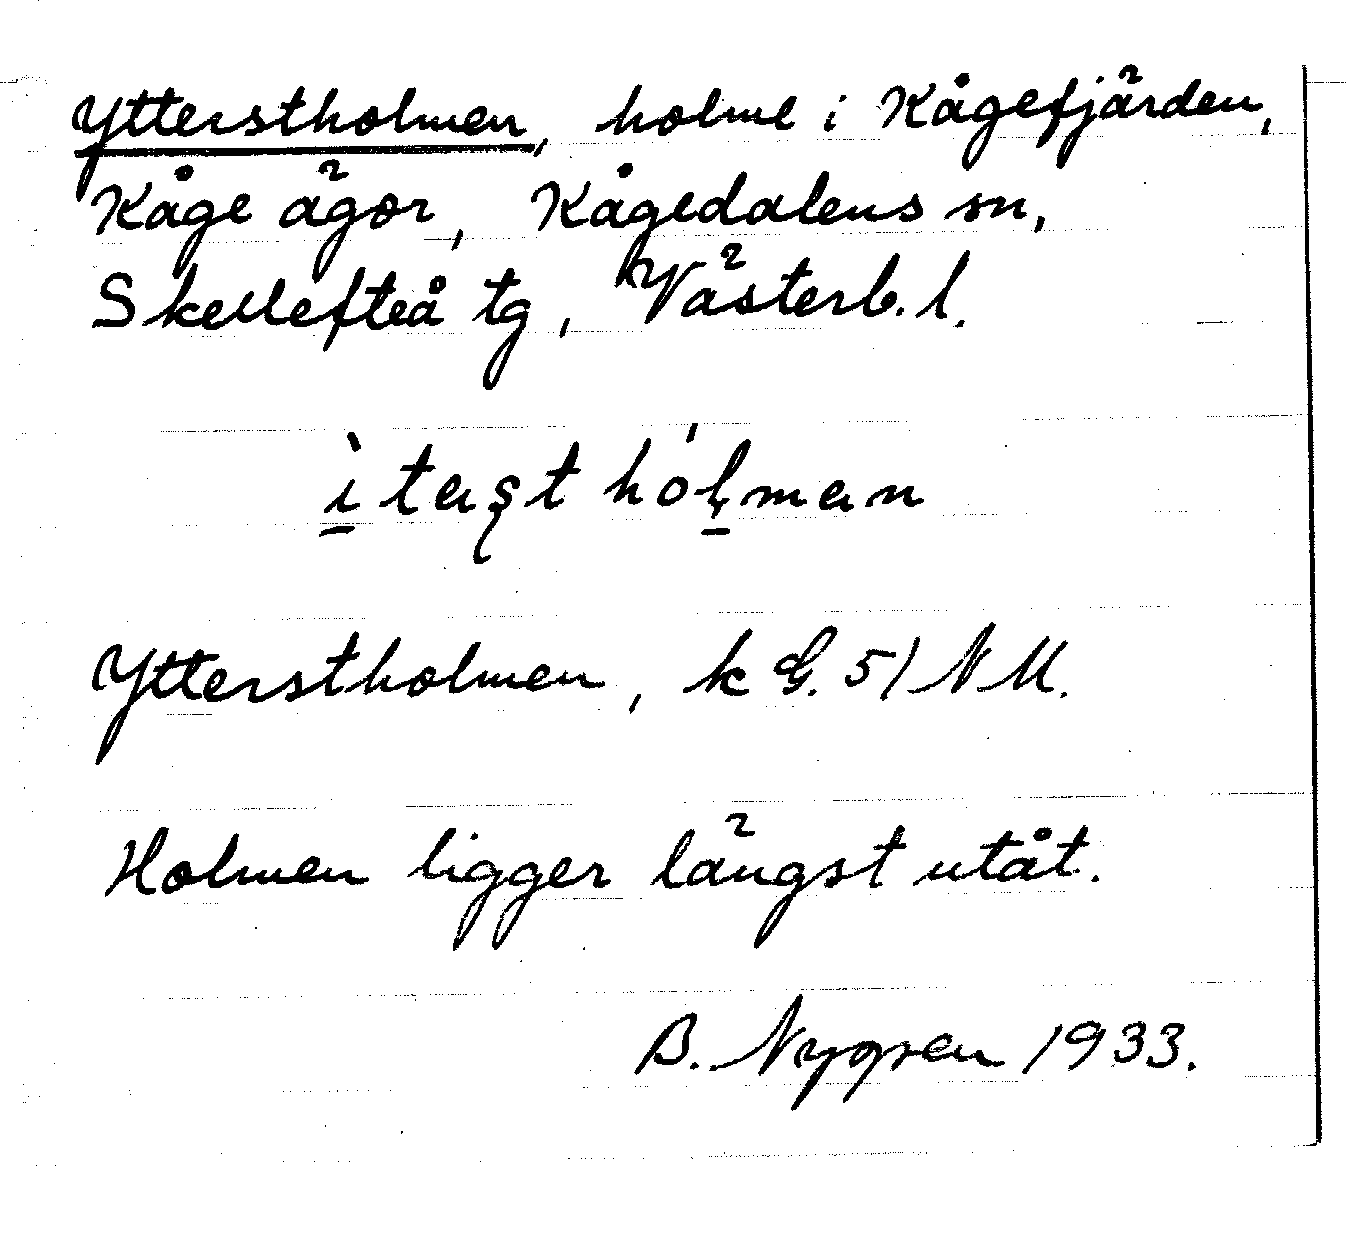 Ytterstholmen, holme i Kågefjärden,
Kåge ägor, Kågedalens sn,
Skellefteå tg, Västerb. l.
ì̱ taʂt hó̱ḷman
Ytterstholmen, k G. 51 NM.
Holmen ligger längst utåt.
B. Nygren 1933.